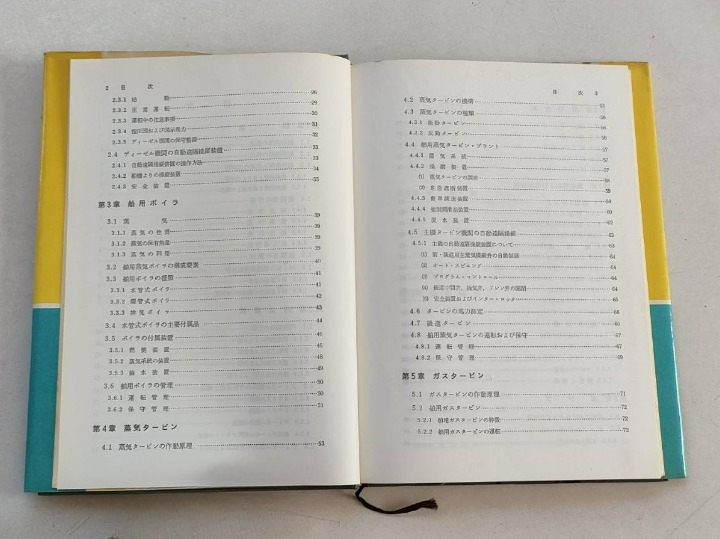 2 目 次
2.3.1 始 動 26
2.3.2 正 常 運 転 29
2.3.3 運転中の注意事項 30
2.3.4
2.3.5 ディーゼル機関の保守整備 33
2.4 ディーゼル機関の自動遠隔操縦装置
2.4.1 自動遠隔操縦装置の操作方法
2.4.2
2.4.3 安 全 装 置 35
第3章 舶用ボイラ
3.1 蒸 気 39
3.1.1 蒸 気 の 性 質 39
3.1.2 蒸気の保有熱量
3.1.3
3.2 舶用蒸気ボイラの構成要素
3.3 舶用ボイラの種類
3.3.1 水管式ボイラ
3.3.2 煙管式ボイラ 43
3.3.3 排 気 ボ イ ラ
3.4 水管式ボイラの主要付属品 44
3.5 ボイラの付属装置 46
3.5.1 燃 焼 装 置 46
3.5.2 蒸気系統の装置 48
3.5.3 給 水 装 置 49
3.6 舶用ボイラの管理 50
3.6.1 運 転 管 理 50
3.6.2 保 守 管 理 51
第4章 蒸気タービン
4.1 蒸気タービンの作動原理 53
目 次 3
4.2 蒸気タービンの構造
4.3 蒸気タービンの種類
4.3.1 衝動タービン 56
4.3.2 反動タービン 56
4.4 舶用蒸気タービン・プラント 57
4.4.1 蒸 気 系 統 57
4.4.2 操 縦 装 置 57
(1) 蒸気タービンの調速
(2) 危急遮断装置
4.4.3
4.4.4
4.4.5 復 水 装 置
4.5 主機タービン機関の自動遠隔操縦
4.5.1 主機の自動遠隔操縦装置について
(1)
(2) オート・スピニング
(3) プログラム・コントロール
(4)
(5) 安全装置およびインター・ロック
4.6 タービンの馬力算定 66
4.7 後 進 タ ー ビ ン 67
4.8 舶用蒸気タービンの運転および保守 67
4.8.1 運 転 管 理 67
4.8.2 保 守 管 理 69
第5章 ガスタービン
5.1 ガスタービンの作動原理 71
5.2 舶用ガスタービン 72
5.2.1 舶用ガスタービンの特徴 72
5.2.2 舶用ガスタービンの運転 72